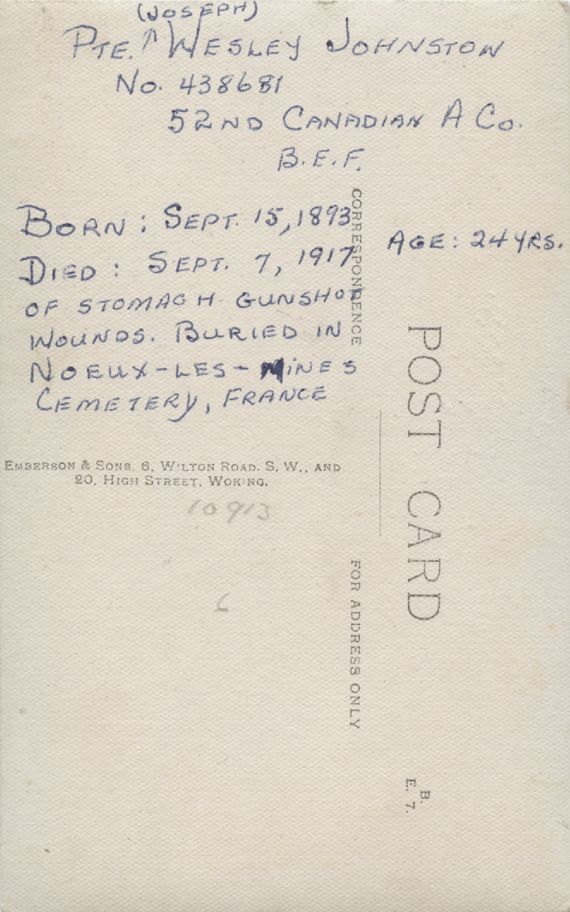 (JOSEPH)
PTE. ↑ WESLEY JOHNSTON
NO. 438681
52ND CANADIAN A CO.
B.E.F.
BORN: SEPT. 15, 1893
AGE: 24 YRS.
DIED: SEPT. 7, 1917
OF STOMACH GUNSHOT
WOUNDS. BURIED IN
NOEUX-LES-MINES
CEMETERY, FRANCE
CORRESPONDENCE
POST CARD
EMBERSON & SONS, 6, WILTON ROAD. S. W., AND
20, HIGH STREET, WOKING.
10913
6
FOR ADDRESS ONLY
B.
E. 7.